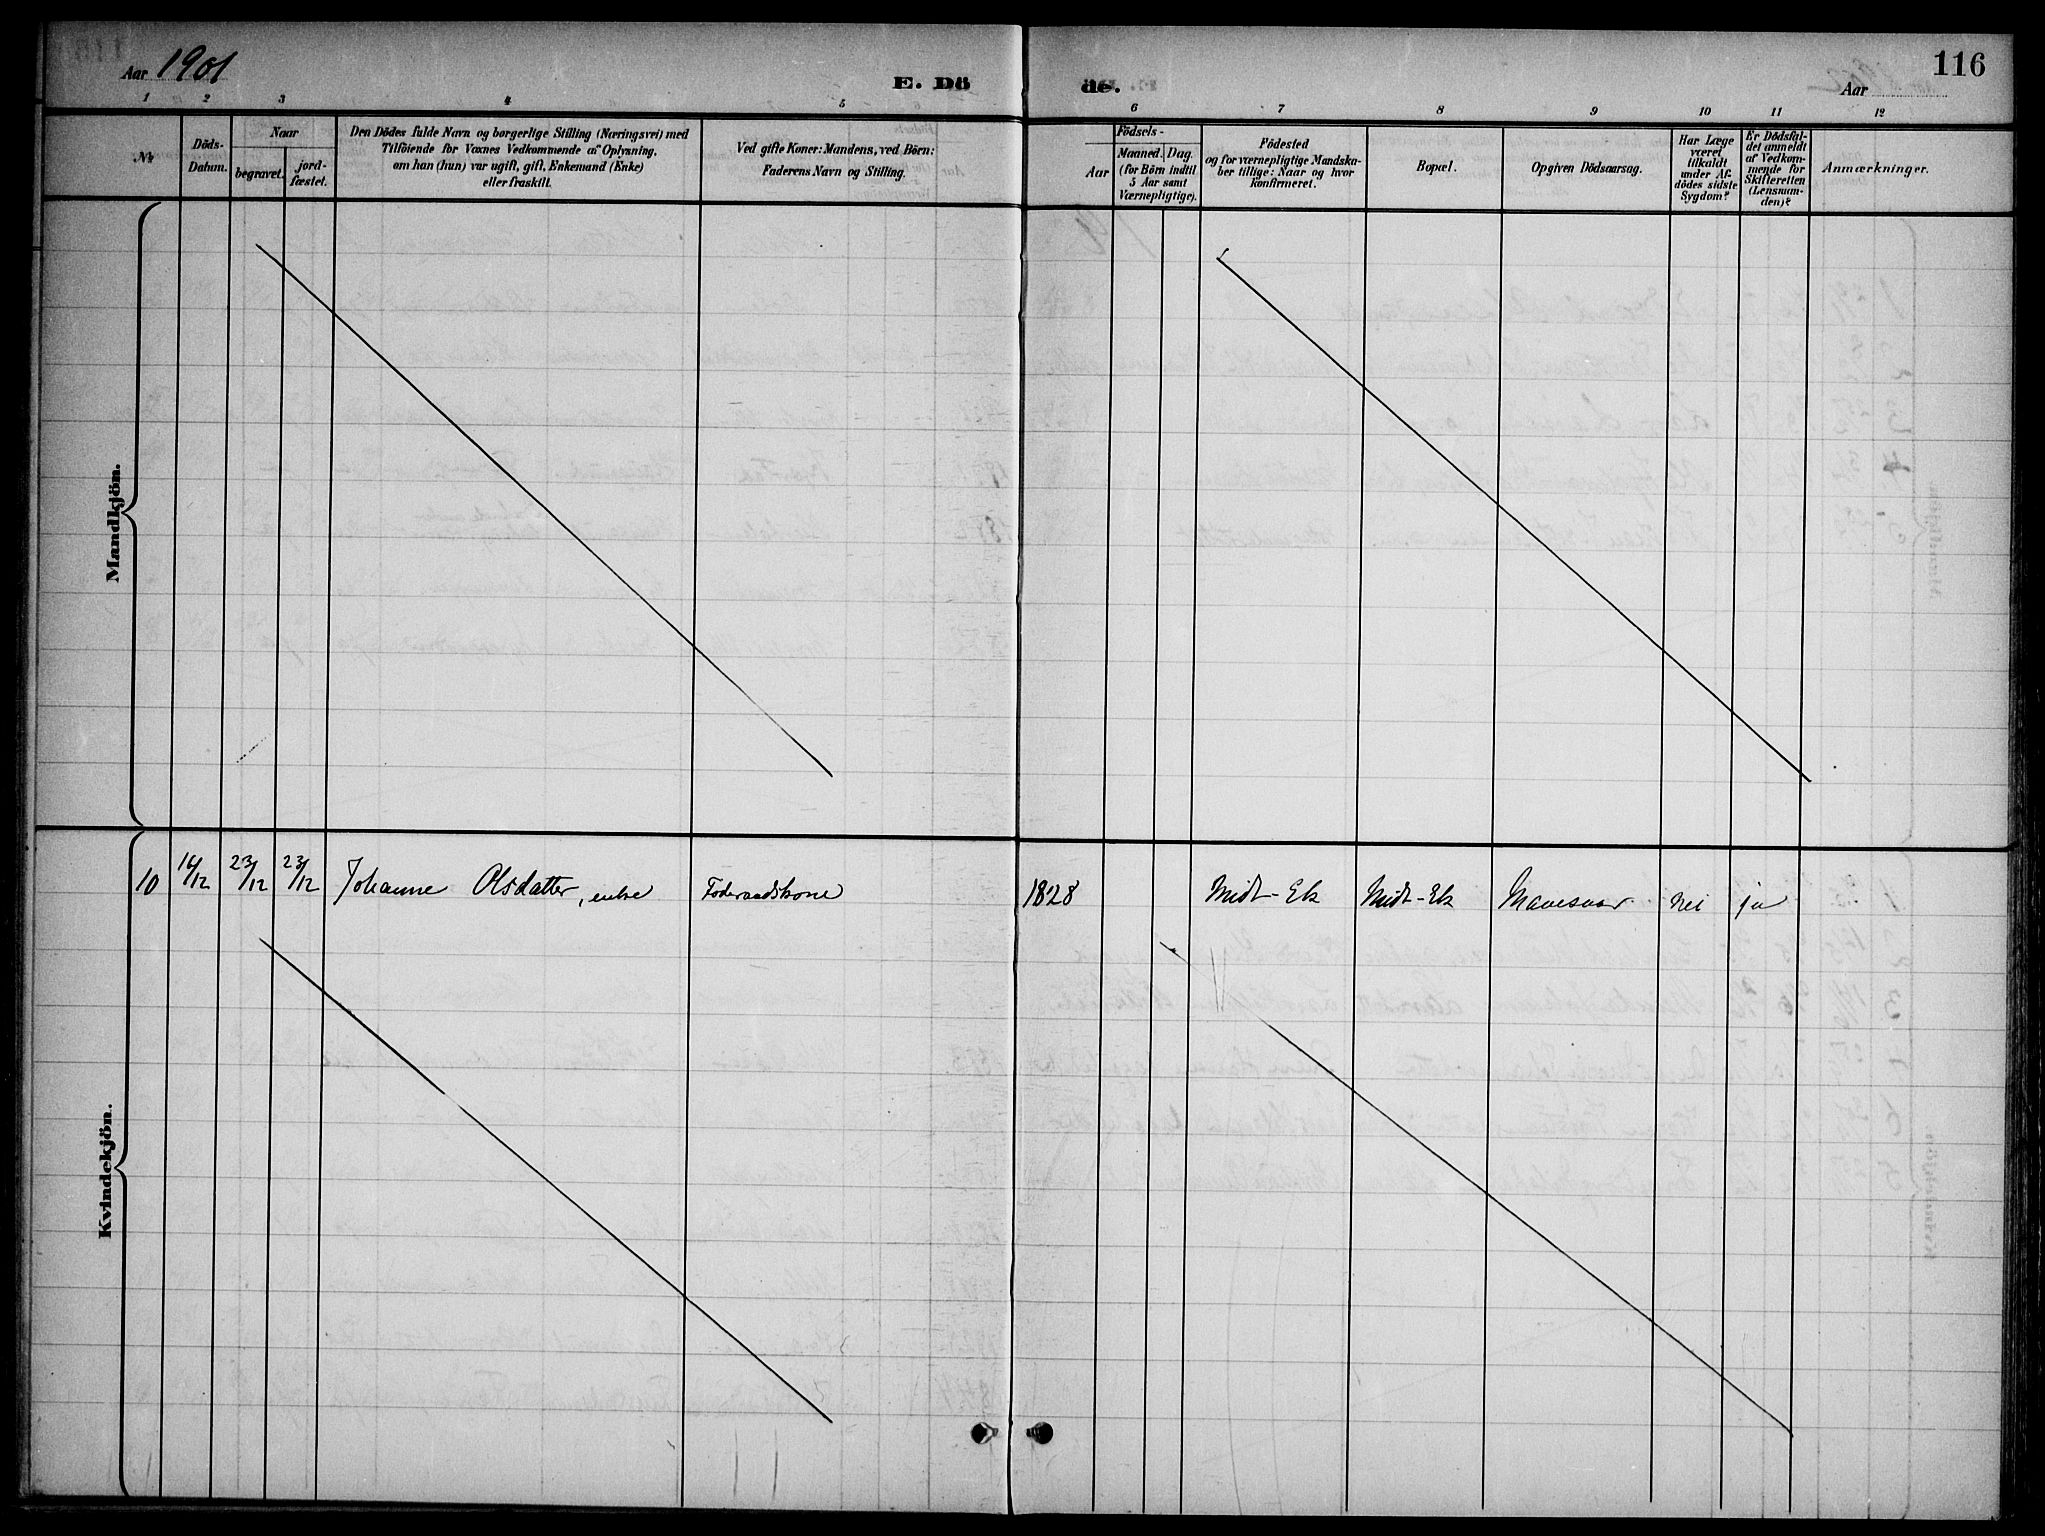 Aar 1901
E. Dö
de.
Aar
116
1 2 3 4 5 6 7 8 9 10 11 12
No
Döds-
Datum.
Naar
begravet.
jord-
fæstet.
Den Dödes fulde Navn og borgerlige Stilling (Næringsvei) med
Tilföiende for Voxnes Vedkommende af Oplysning,
om han (hun) var ugift, gift, Enkemand (Enke)
eller fraskilt.
Ved gifte Koner: Mandens, ved Börn:
Faderens Navn og Stilling.
Födsels-
Aar
Maaned. Dag.
(for Börn indtil
5 Aar samt
Værnepligtige).
Födested
og for værnepligtige Mandska-
ber tillige: Naar og hvor
konfirmeret.
Bopæl.
Opgiven Dödsaarsag.
Har Læge
været
tilkaldt
under Af-
dödes sidste
Sygdom?
Er Dödsfal-
det anmeldt
af Vedkom-
mende for
Skifteretten
(Lensman-
den)?
Anmærkninger.
Mandkjön.
Kvindekjön.
10 16/12 23/12 23/12 Johanne Olsdatter, enke Foderaadskone 1828 Midt-Ek Midt-Ek Mavesaar nei ja